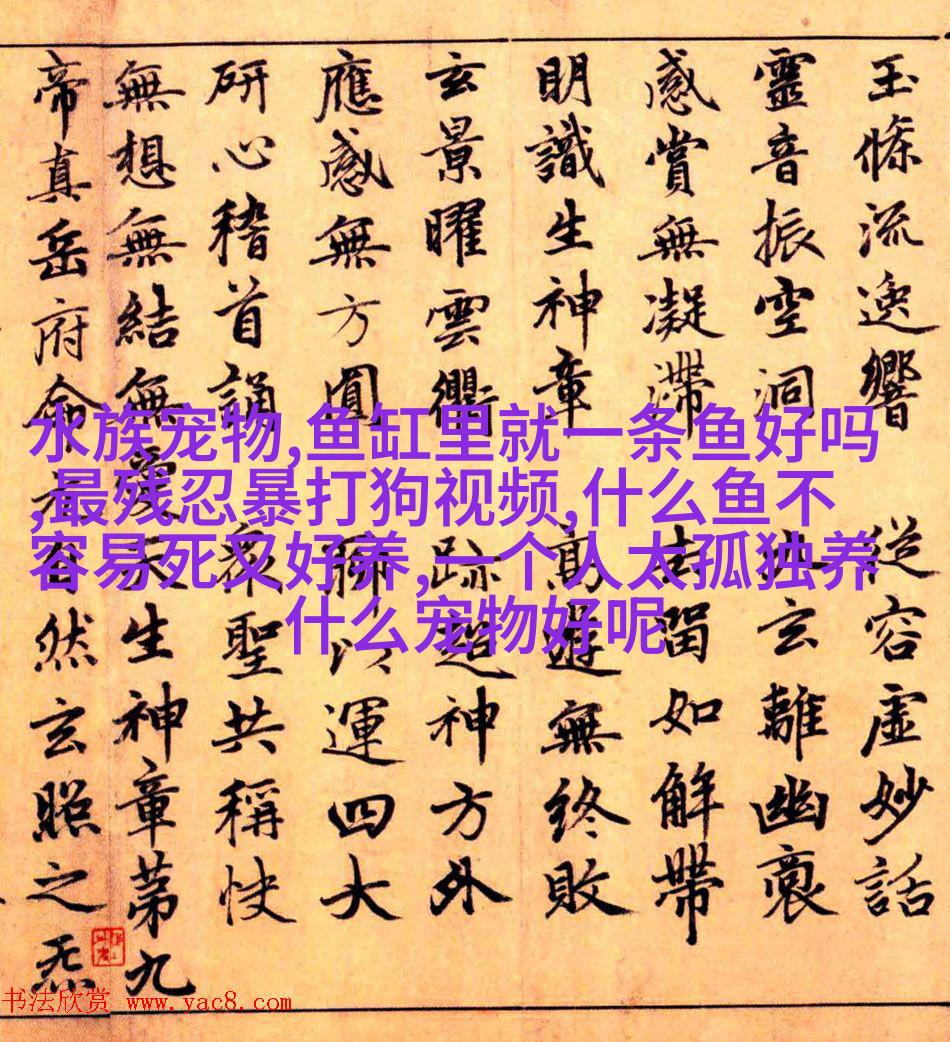 玉條流逸響從容虛妙話
靈音振空洞玄離幽裏
感賞無凝滯如解帶
明識生神章高遊無終敗
玄景曜雲衢跡超神方外
應感無方圓運四大
研心稽首誦聖共稱快
無想無結無愛天生神章第九
帝真岳府命自然玄照之炁
水族宠物,鱼缸里就一条鱼好吗
,最残忍暴打狗视频,什么鱼不
容易死又好养,一个人太孤独养
什么宠物好呢
书法欣赏 www.yac8.com